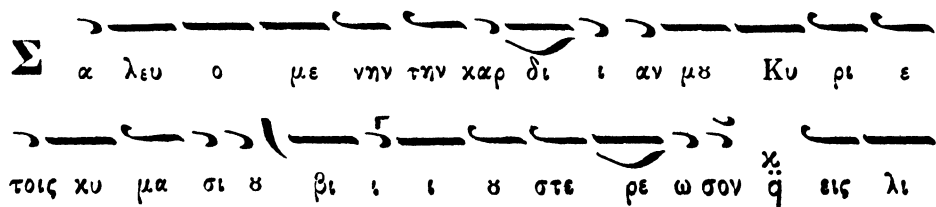 Σ α λευ ο με νην την καρ δι ι αν μȣ Κυ ρι ε
τοις κυ μα σι ȣ βι ι ι ȣ στε ρε ω σον εις λι